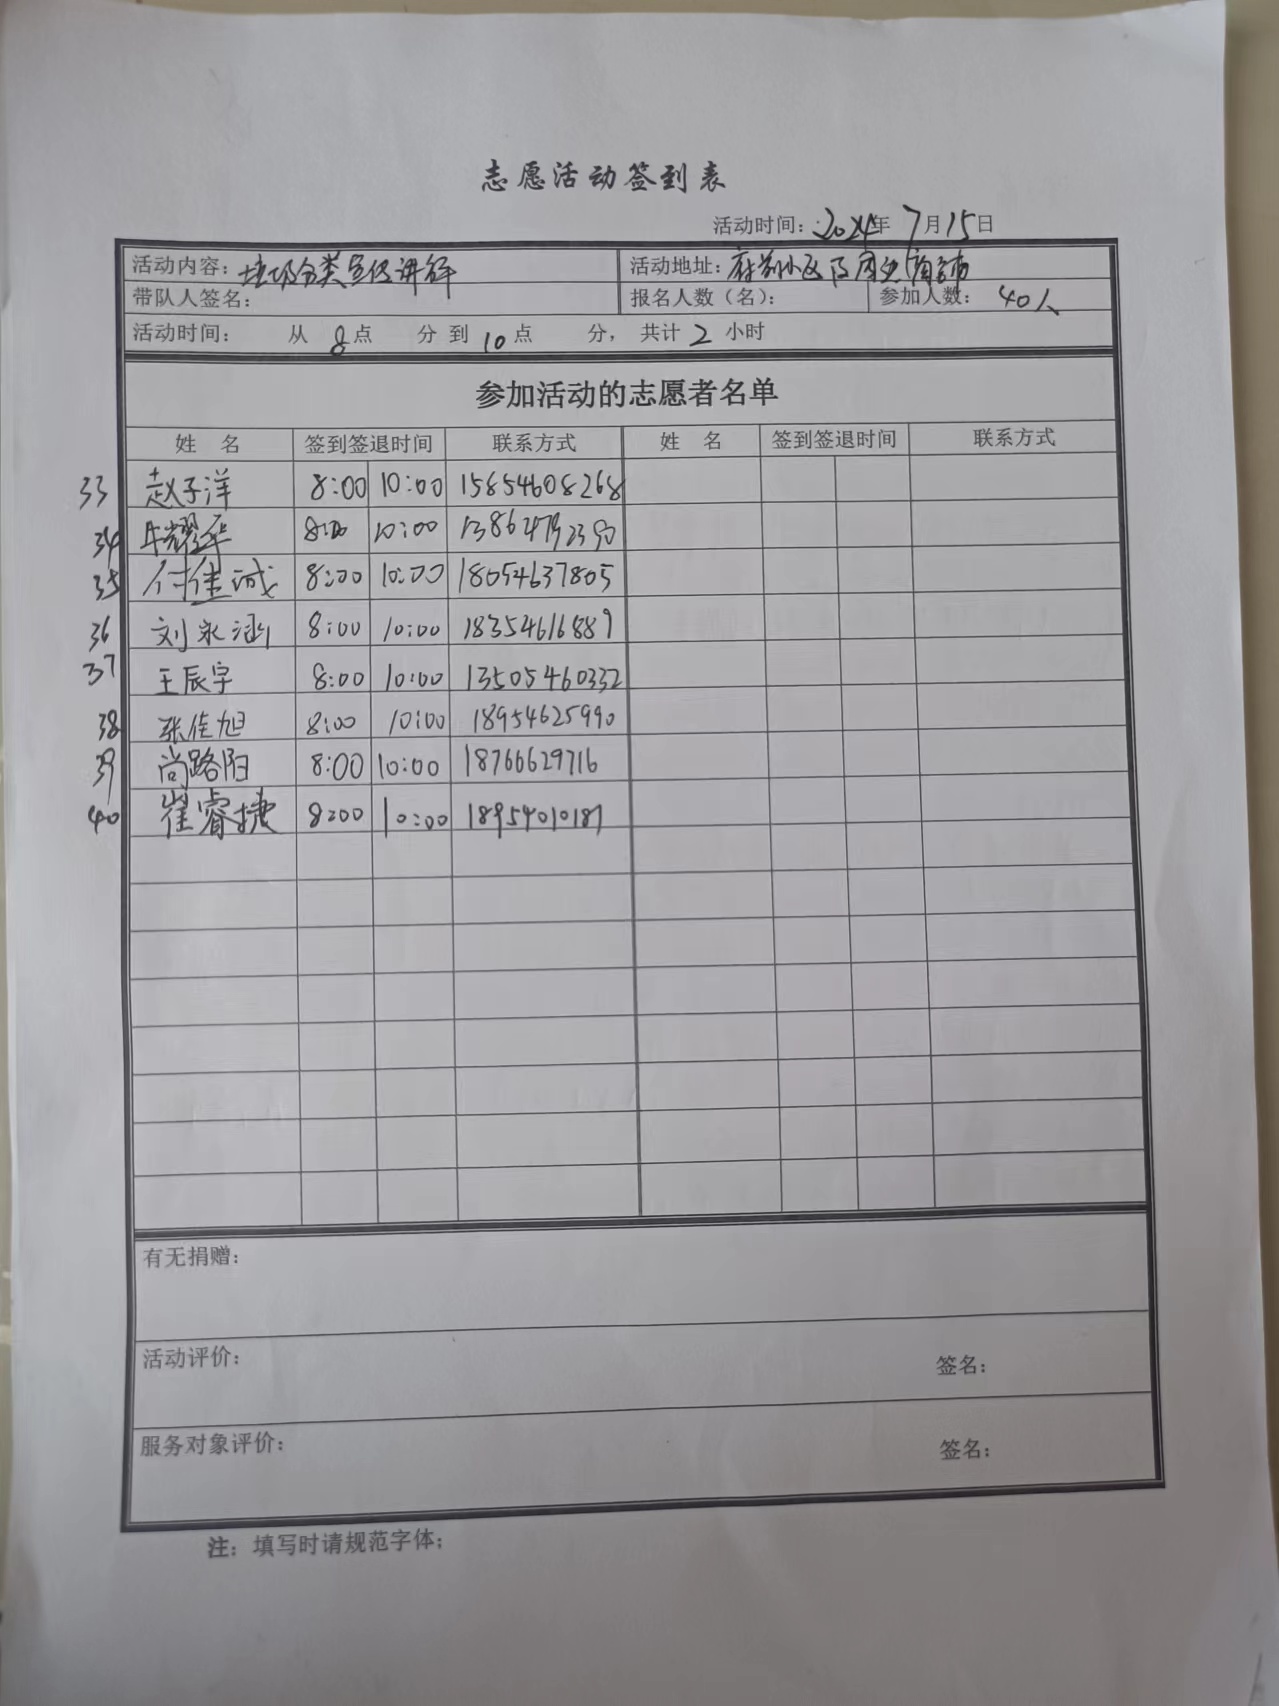 志愿活动签到表
活动时间：2024年7月15日
活动内容：垃圾分类宣传讲解 活动地址：府前小区及周边商铺
带队人签名： 报名人数（名）： 参加人数：40人
活动时间： 从 8点 分到 10点 分，共计 2 小时
参加活动的志愿者名单
姓 名 签到签退时间 联系方式 姓 名 签到签退时间 联系方式
33 赵子洋 8:00 10:00 15854608268
34 牛耀华 8:00 10:00 13864792390
35 付佳诚 8:00 10:00 18054637805
36 刘永涵 8:00 10:00 18354616889
37 王辰宇 8:00 10:00 13505460332
38 张佳旭 8:00 10:00 18954625990
39 尚路阳 8:00 10:00 18766629716
40 崔睿捷 8:00 10:00 18954010187
有无捐赠：
活动评价：
签名：
服务对象评价：
签名：
注：填写时请规范字体；